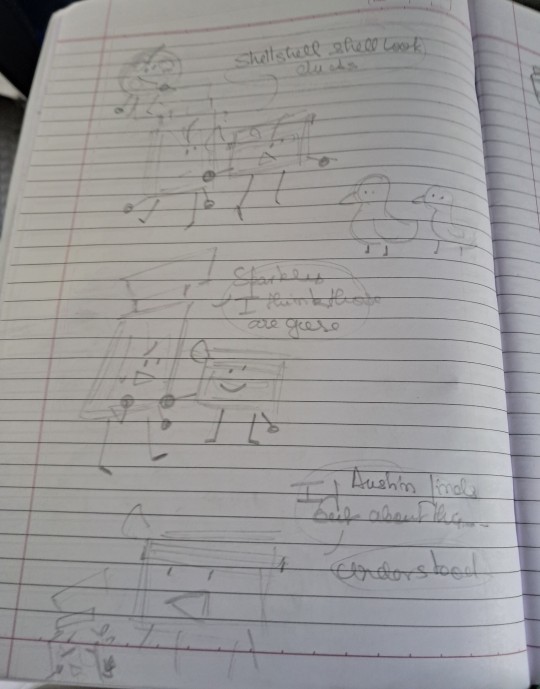 shellshell shell look
ducks
Sparkles
I think those
are geese
If Austin finds
out about the
understood